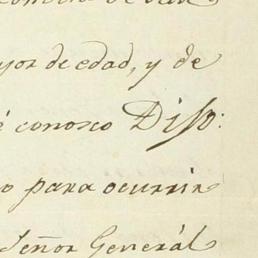 yor de edad, y de
é conosco Dijo:
o para ocurrir
Señor Generál